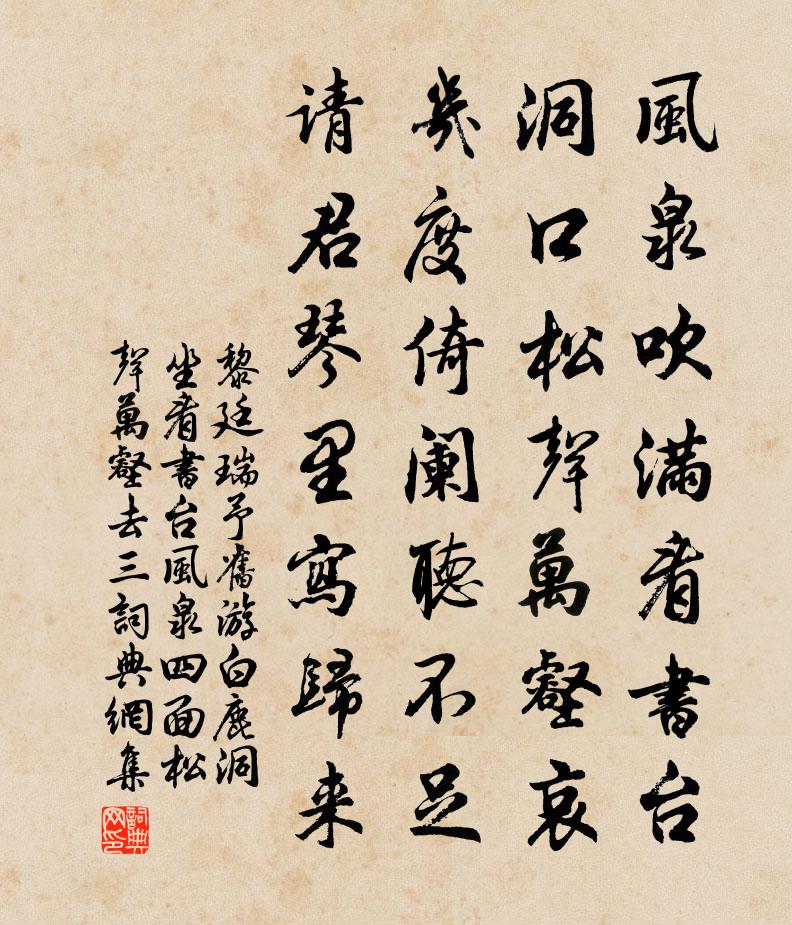 風泉吹满看書台
洞口松聲萬壑哀
幾度倚阑聽不足
请君琴里寫歸来
黎廷瑞予舊游白鹿洞
坐看書台風泉四面松
聲萬壑去三詞典網集
詞典网印